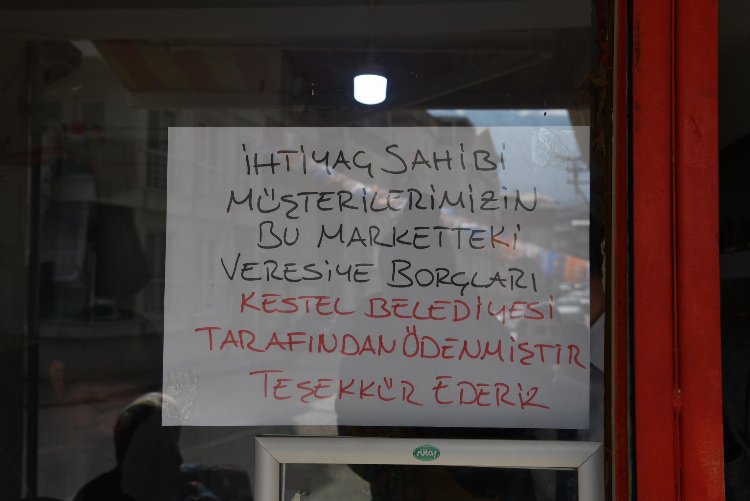 İHTİYAÇ SAHİBİ
MÜŞTERİLERİMİZİN
BU MARKETTEKİ
VERESİYE BORÇLARI
KESTEL BELEDİYESİ
TARAFINDAN ÖDENMİŞTİR
TEŞEKKÜR EDERİZ
sütaş